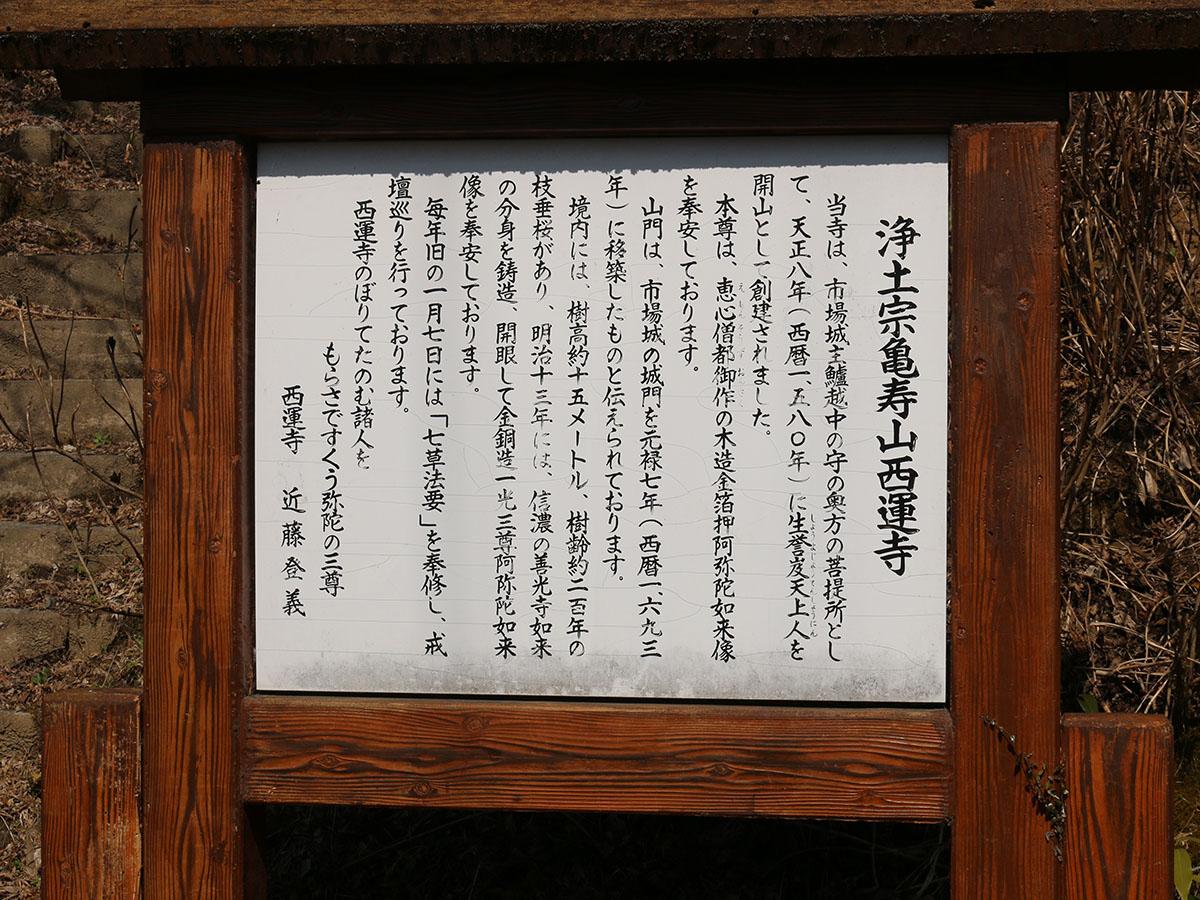 浄土宗亀寿山西運寺
当寺は、市場城主鱸越中の守の奥方の菩提所とし
て、天正八年(西暦一、五八〇年)に生誉岌天上人を
開山として創建されました。
本尊は、恵心僧都御作の木造金箔押阿弥陀如来像
を奉安しております。
山門は、市場城の城門を元禄七年(西暦一、六九三
年)に移築したものと伝えられております。
境内には、樹高約十五メートル、樹齢約二百年の
枝垂桜があり、明治十三年には、信濃の善光寺如来
の分身を鋳造、開眼して金銅造一光三尊阿弥陀如来
像を奉安しております。
毎年旧の一月七日には「七草法要」を奉修し、戒
壇巡りを行っております。
西運寺のぼりてたのむ諸人を
もらさですくう弥陀の三尊
西運寺 近藤登義